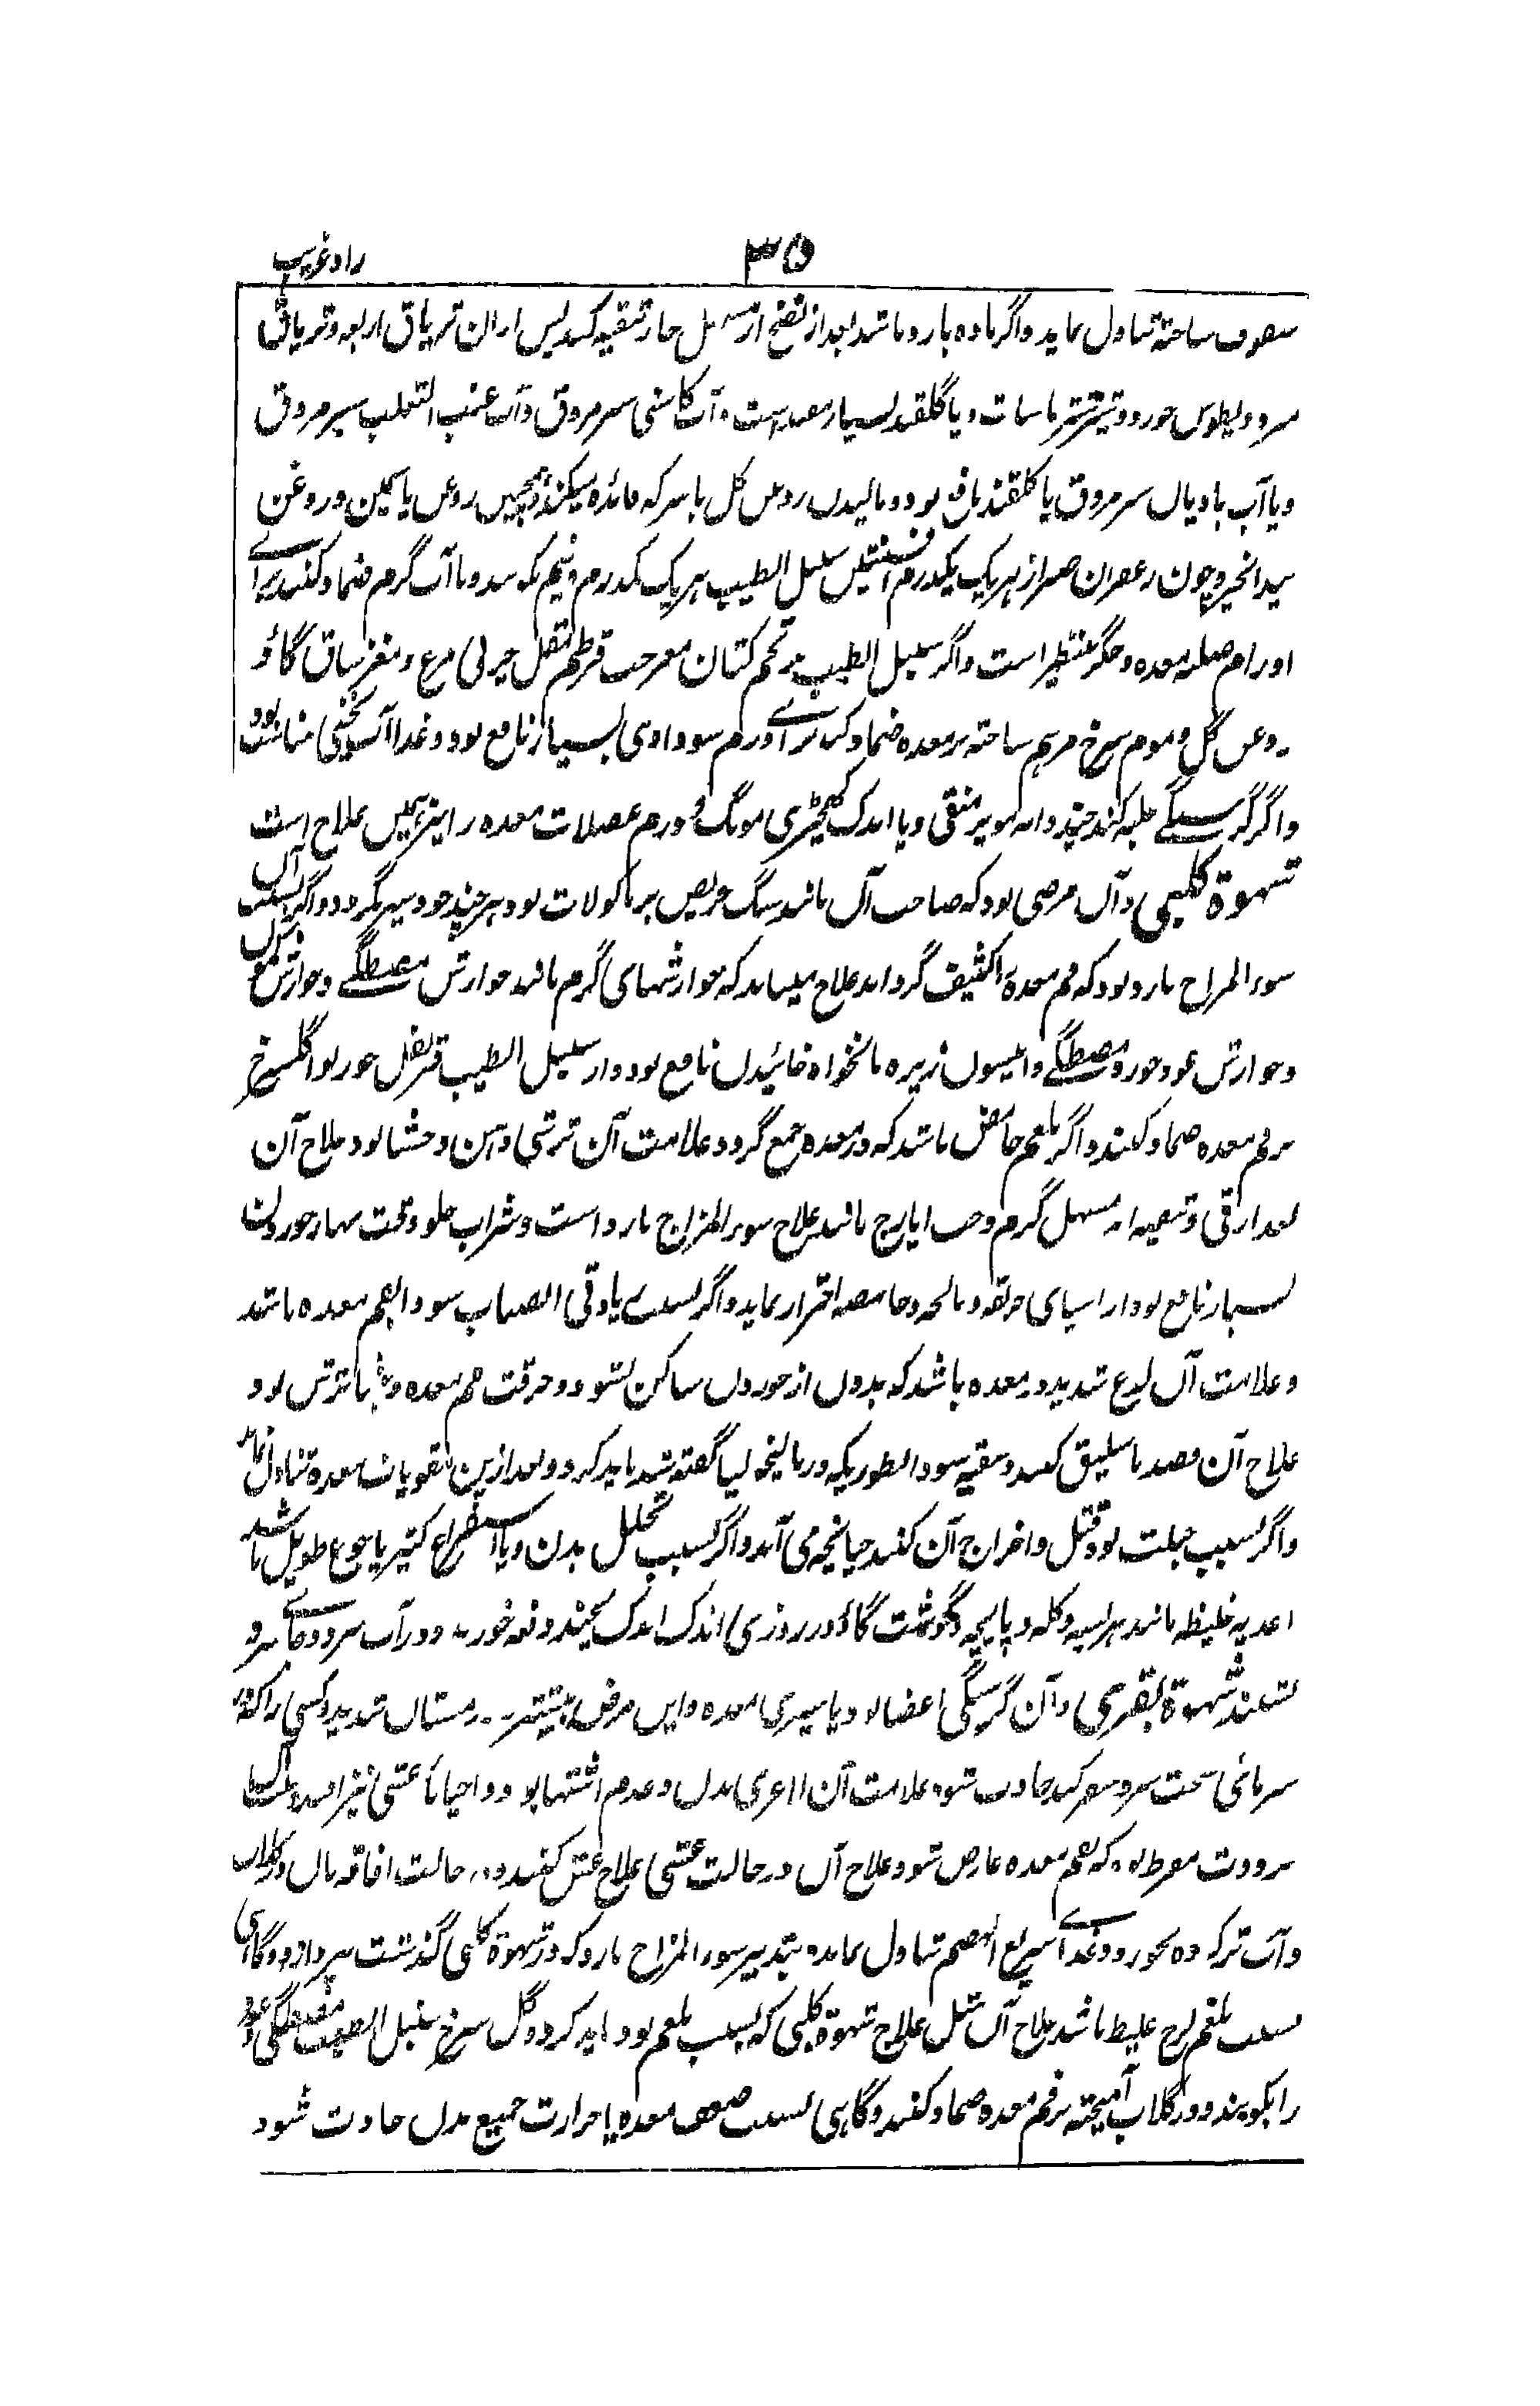 زاد غریب
۳۵
سفوف ساخته تناول نماید و اگر ماده بارد باشد بعد از نضج از مسهل حار تنقیه کنند پس ازان تریاق اربعه و تریاق
خورد و با گلقند بسیار مفید است و آب کاسنی سبز مروق و آب عنب الثعلب سبز مروق
و یا آب بادیان سبز مروق با گلقند نافع بود و مالیدن روغن گل با سرکه فائده میکند و همچنین روغن یاسمین و روغن
بیدانجیر و چون زعفران صبر از هریک یکدرم افسنتین سنبل الطیب هریک یکدرم و نیم کوبند و با آب گرم ضماد کنند برای
اورام صلبه معده و جگر بینظیر است و اگر سنبل الطیب تخم کتان مغز حب قرطم مقل چربی مرغ و مغز ساق گاؤ
روغن گل و موم سرخ مرهم ساخته بر معده ضماد کنند برای ورم سوداوی بسیار نافع بود و غذا آب یخنی مناسب بود
و اگر گرسنگی غلبه کند چند دانه مویز منقی و یا اندک کھچڑی مونگ و ورم عضلات معده را نیز همین علاج است
شهوة کلبی و آن مرضی بود که صاحب آن مانند سگ حریص بر ماکولات بود هر چند خورد سیر نگردد و اگر سبب آن
سوء المزاج بارد بود که فم معده را کثیف گرداند علاج میباید که جوارشهای گرم مانند جوارش مصطگی و جوارش
و جوارش عود خورد و مصطگی و انیسون زیره نانخواه خائیدن نافع بود و از سنبل الطیب قرنفل گلسرخ
بر فم معده ضماد کنند و اگر بلغم حامض باشد که در معده جمع گردد علامت آن ترشی دهن و جشا بود علاج آن
بعد از قی و تنقیه از مسهل گرم و حب ایارج مانند علاج سوء المزاج بارد است و شراب حلو وقت نهار خوردن
بسیار نافع بود و از اشیای حریفه و مالحه و حامضه احتراز نماید و اگر بسبب انصباب سودا بفم معده باشد
و علامت آن لذع شدید در معده باشد که بدون از خوردن ساکن نشود و حرقت فم معده و ترش بود
علاج آن فصد باسلیق کنند و تنقیه سودا بطوریکه در مالیخولیا گفته شد باید کرد و بعد ازین مقویات معده تناول نماید
و اگر بسبب بود قتل و اخراج آن کنند چنانچه می آید و اگر بسبب تحلل بدن و یا استفراغ کثیر یا جوع طویل باشد
اغذیه غلیظه مانند هریسه و کله و پاچه و گوشت گاؤ در روزی اندک اندک بچند دفعه خورند و در آب سرد و جای سرد
نشینند شهوة بقری و آن گرسنگی اعضا بود با سیری معده و این مرض بیشتر در زمستان شدید و کسی را که در
سرمائی سخت سرد سفر کند حادث شود علامت آن لاغری بدن و عدم اشتها بود و احیانا غشی نیز افتد و سبب آن
برودت مفرط بود که بفم معده عارض شود علاج آن در حالت غشی علاج غش کنند و در حالت افاقه نان در گلاب
و آب تر کرده بخورد و غذای سریع الهضم تناول نماید و بتدبیر سوء المزاج بارد که در شهوة کلبی گذشت پردازد و گاهی
بسبب بلغم لزج غلیظ باشد علاج آن مثل علاج شهوة کلبی که بسبب بلغم بود باید کرد و گل سرخ سنبل الطیب مصطگی عود
را بکوبند و در گلاب آمیخته بر فم معده ضماد کنند و گاهی بسبب ضعف معده یا حرارت جمیع بدن حادث شود